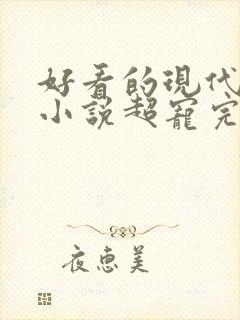 好看的現代
小說超寵完
夜惠美